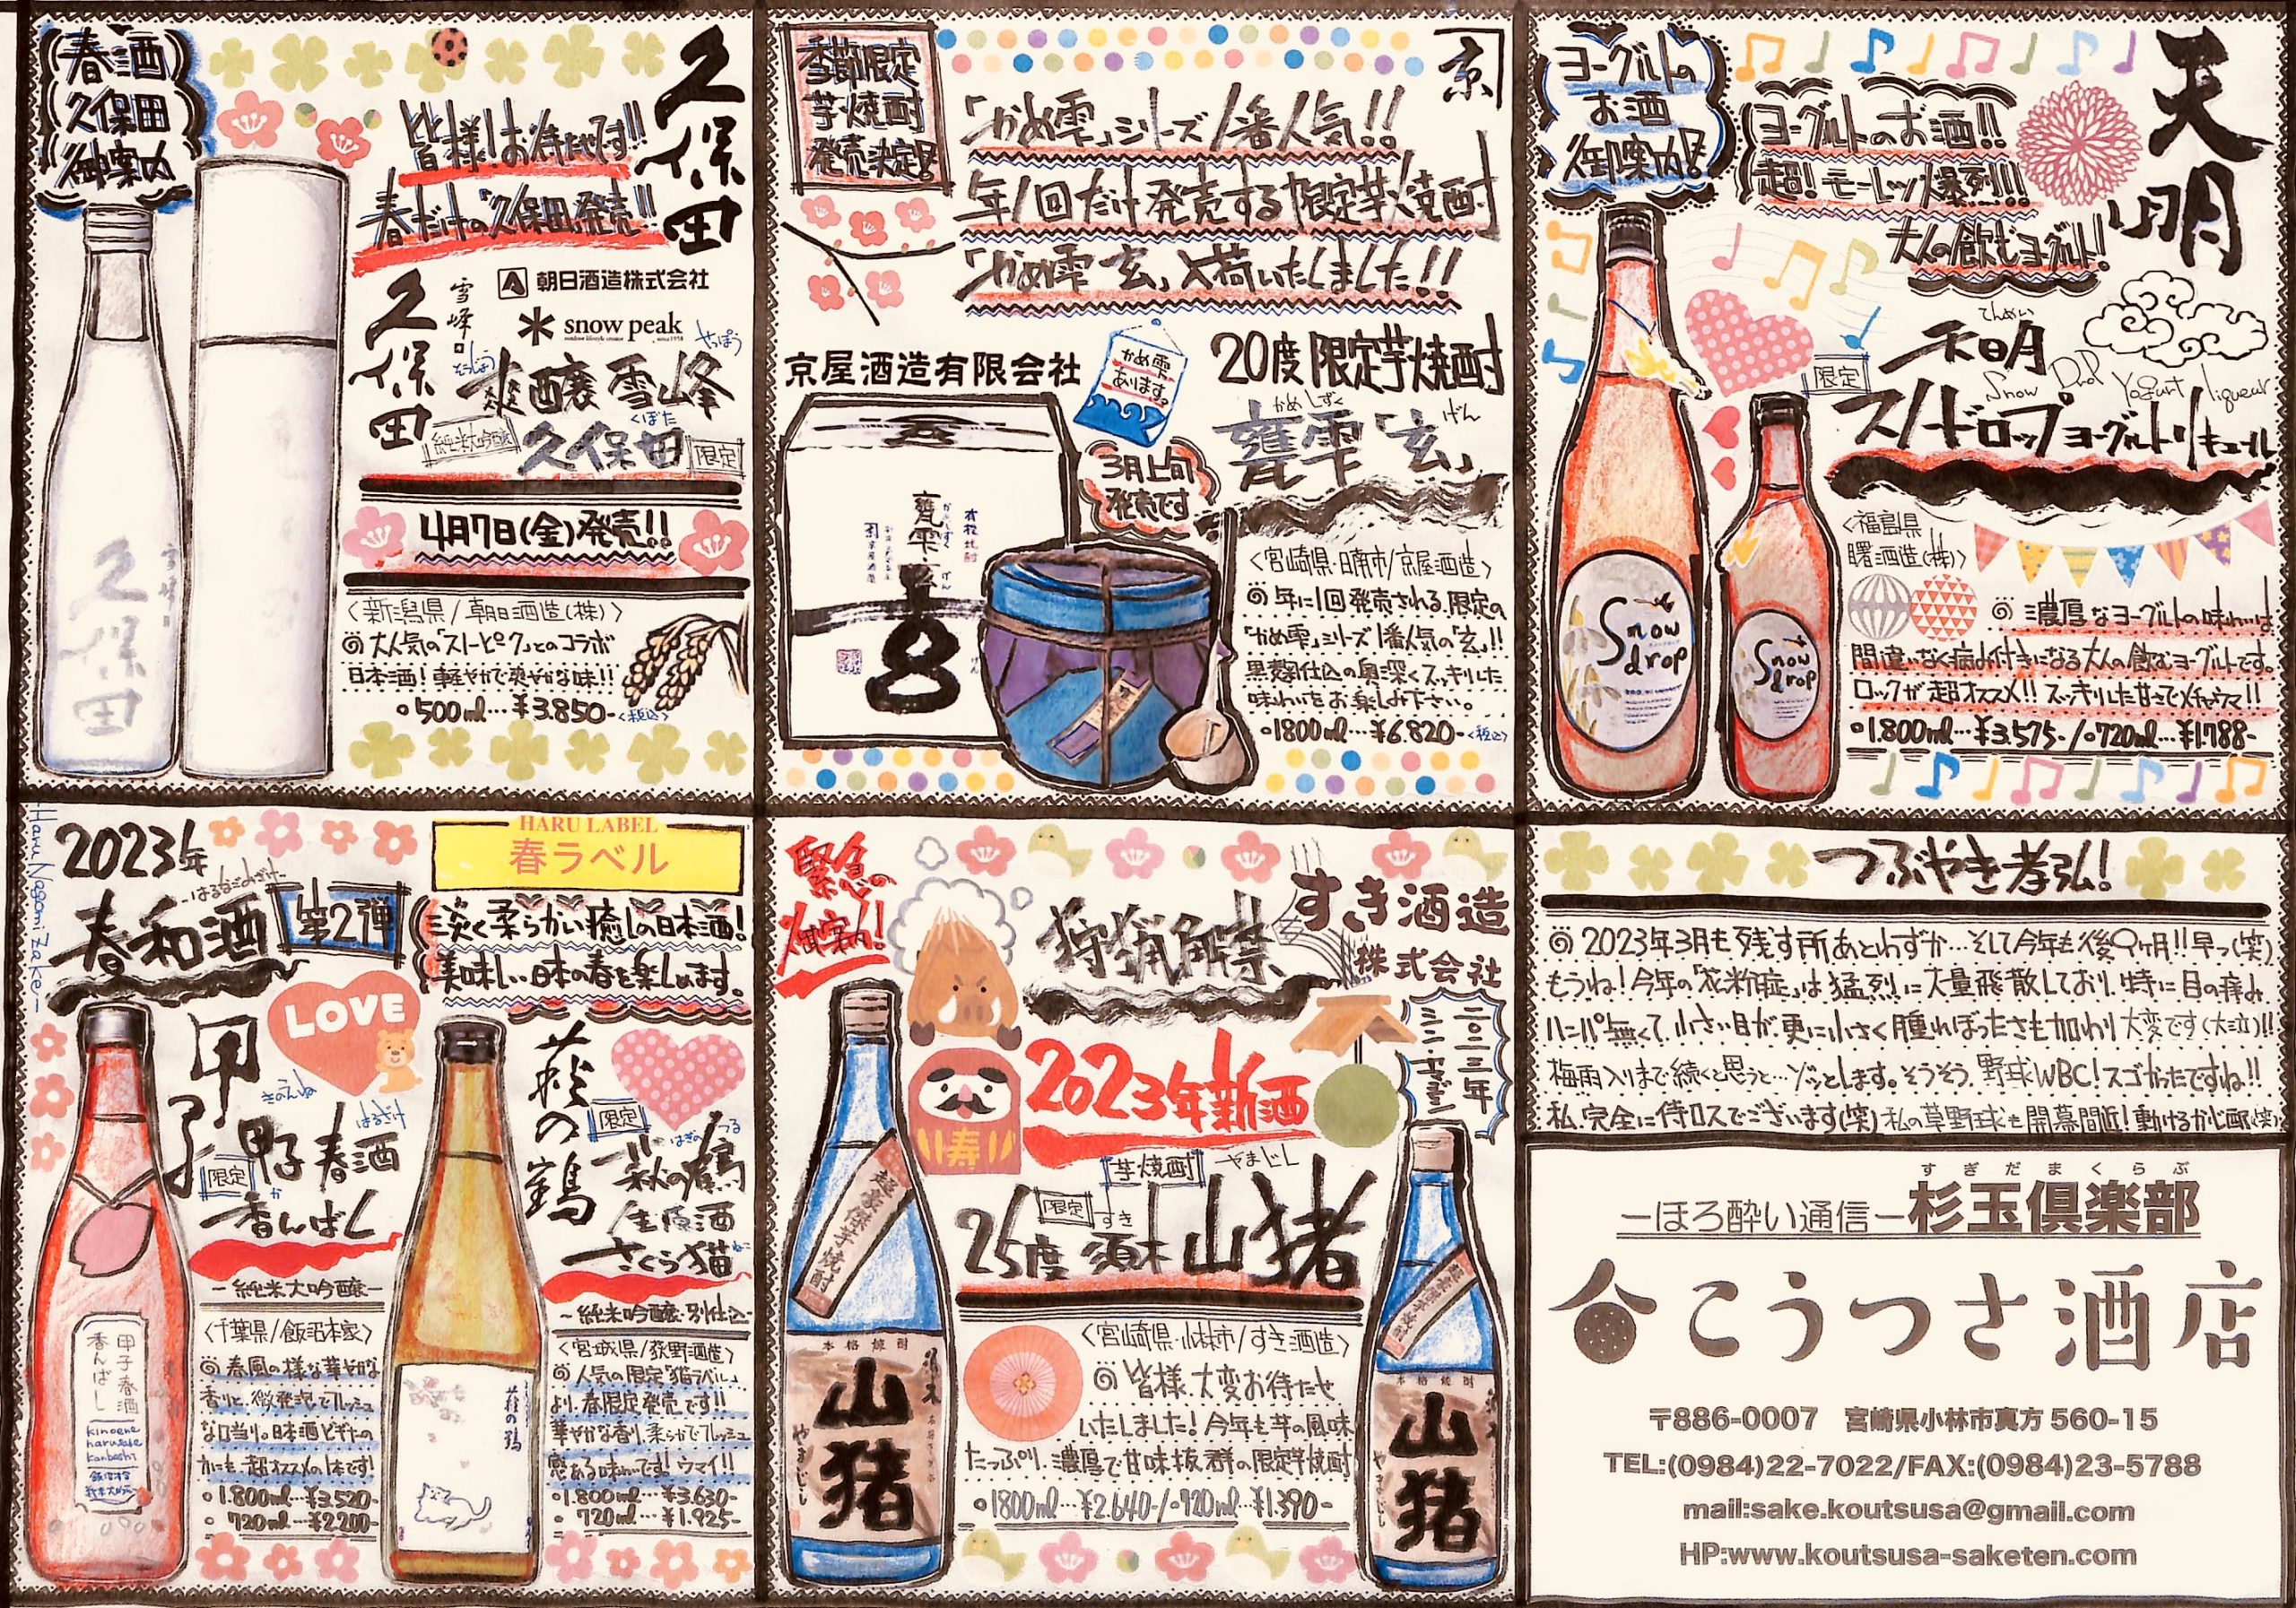 春酒
久保田
御案内
久保田
皆様!お待たせです!!
春だけの「久保田」発売!!
朝日酒造株式会社
snow peak
久保田
雪峰
そうじょう
せっぽう
爽醸 雪峰
くぼた
純米大吟醸
久保田
限定
4月7日(金)発売!!
〈新潟県/朝日酒造(株)〉
◎大人気の「スノーピーク」とのコラボ
日本酒!軽やかで爽やかな味!!
○500ml…¥3.850-〈税込〉
久保田
雪峰
季節限定
芋焼酎
発売決定!!
京
「かめ雫」シリーズ1番人気!!
年1回だけ発売する限定芋焼酎
「かめ雫 玄」入荷いたしました!!
京屋酒造有限会社
かめ雫
あります。
20度 限定芋焼酎
かめしずく
げん
甕雫「玄」
3月上旬
発売です
甕雫
玄
〈宮崎県・日南市/京屋酒造〉
◎年に1回発売される、限定の
「かめ雫」シリーズ1番人気の「玄」!!
黒麹仕込の奥深くスッキリした
味わいをお楽しみ下さい。
○1800ml…¥6.820-〈税込〉
ヨーグルトの
お酒
御案内!!
天明
ヨーグルトのお酒!!
超!モーレツ爆列!!!
大人の飲むヨーグルト!
てんめい
天明
限定
Snow Drop Yogurt liqueur
スノードロップヨーグルトリキュール
〈福島県
曙酒造(株)〉
◎濃厚なヨーグルトの味わいは
間違いなく病み付きになる大人の飲むヨーグルトです。
ロックが超オススメ!!スッキリした甘さでメチャウマ!!
○1.800ml…¥3.575-/○720ml…¥1.788-
Snow
drop
Snow
drop
Haru Nagomi Zake
2023年
-はるなごみざけ-
春和酒
第2弾
HARU LABEL
春ラベル
淡く柔らかい癒しの日本酒!
美味しい日本の春を楽しめます。
LOVE
甲子
きのえね
はるざけ
甲子 春酒
限定
か
香んばし
-純米大吟醸-
〈千葉県/飯沼本家〉
◎春風の様な華やかな
香りと、微発泡でフレッシュ
な口当り。日本酒ビギナーの
方にも、超オススメの1本です!
○1.800ml…¥3.520-
○720ml…¥2.200-
甲子春酒
香んばし
kinoene
harusake
kanbashi
萩の鶴
限定
はぎのつる
萩の鶴
生原酒
さくら猫
ねこ
-純米吟醸・別仕込-
〈宮城県/萩野酒造〉
◎人気の限定「猫ラベル」
より、春限定発売です!!
華やかな香り、柔らかでフレッシュ
感ある味わいです!ウマイ!!
○1.800ml…¥3.630-
○720ml…¥1.925-
萩の鶴
緊急の
御案内!
狩猟解禁
すき酒造
株式会社
二〇二三年
シン・ヤマジシ
2023年新酒
寿
芋焼酎
やまじし
限定
すき
25度 須木 山猪
〈宮崎県・小林市/すき酒造〉
◎皆様、大変お待たせ
いたしました!今年も芋の風味
たっぷり、濃厚で甘味抜群の限定芋焼酎
○1800ml…¥2.640-/○720ml…¥1.390-
本格焼酎
須木
山猪
やまじし
本格焼酎
山猪
やまじし
つぶやき孝弘!
◎2023年3月も残す所あとわずか…そして今年も後9ヶ月!!早っ(笑)
もうね!今年の「花粉症」は猛烈に大量飛散しており、特に目の痒み
ハンパ無くて、小さい目が、更に小さく腫れぼったさも加わり大変です(大泣)!!
梅雨入りまで続くと思うと…ゾッとします。そうそう、野球WBC!スゴかったですね!!
私、完全に侍ロスでございます(笑)私の草野球も開幕間近!動けるかじ画(笑)
すぎだまくらぶ
-ほろ酔い通信-杉玉倶楽部
こうつさ酒店
〒886-0007 宮崎県小林市真方560-15
TEL:(0984)22-7022/FAX:(0984)23-5788
mail:sake.koutsusa@gmail.com
HP:www.koutsusa-saketen.com